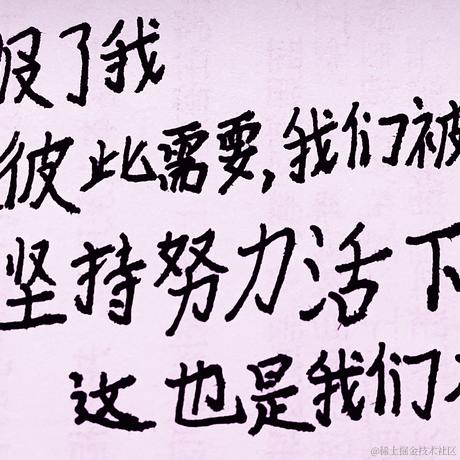 服了我
彼此需要,我们被
坚持努力活下
这也是我们
@稀土掘金技术社区